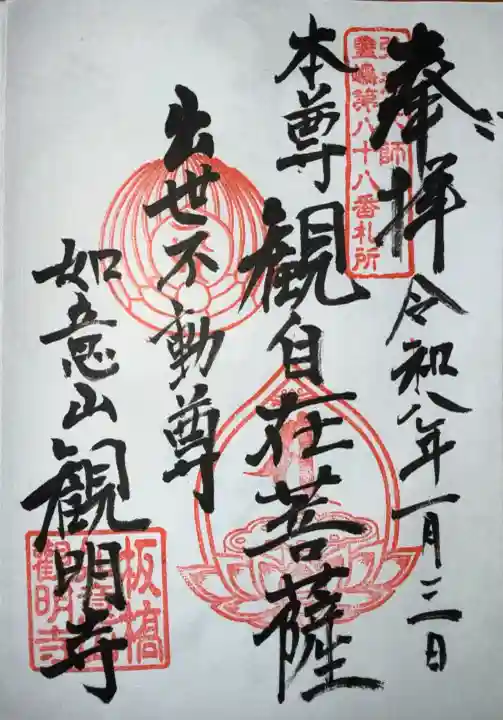 奉拝
令和八年一月三日
弘法大師
霊場第八十八番札所
本尊
観自在菩薩
出世不動尊
如意山観明寺
板橋
観明寺